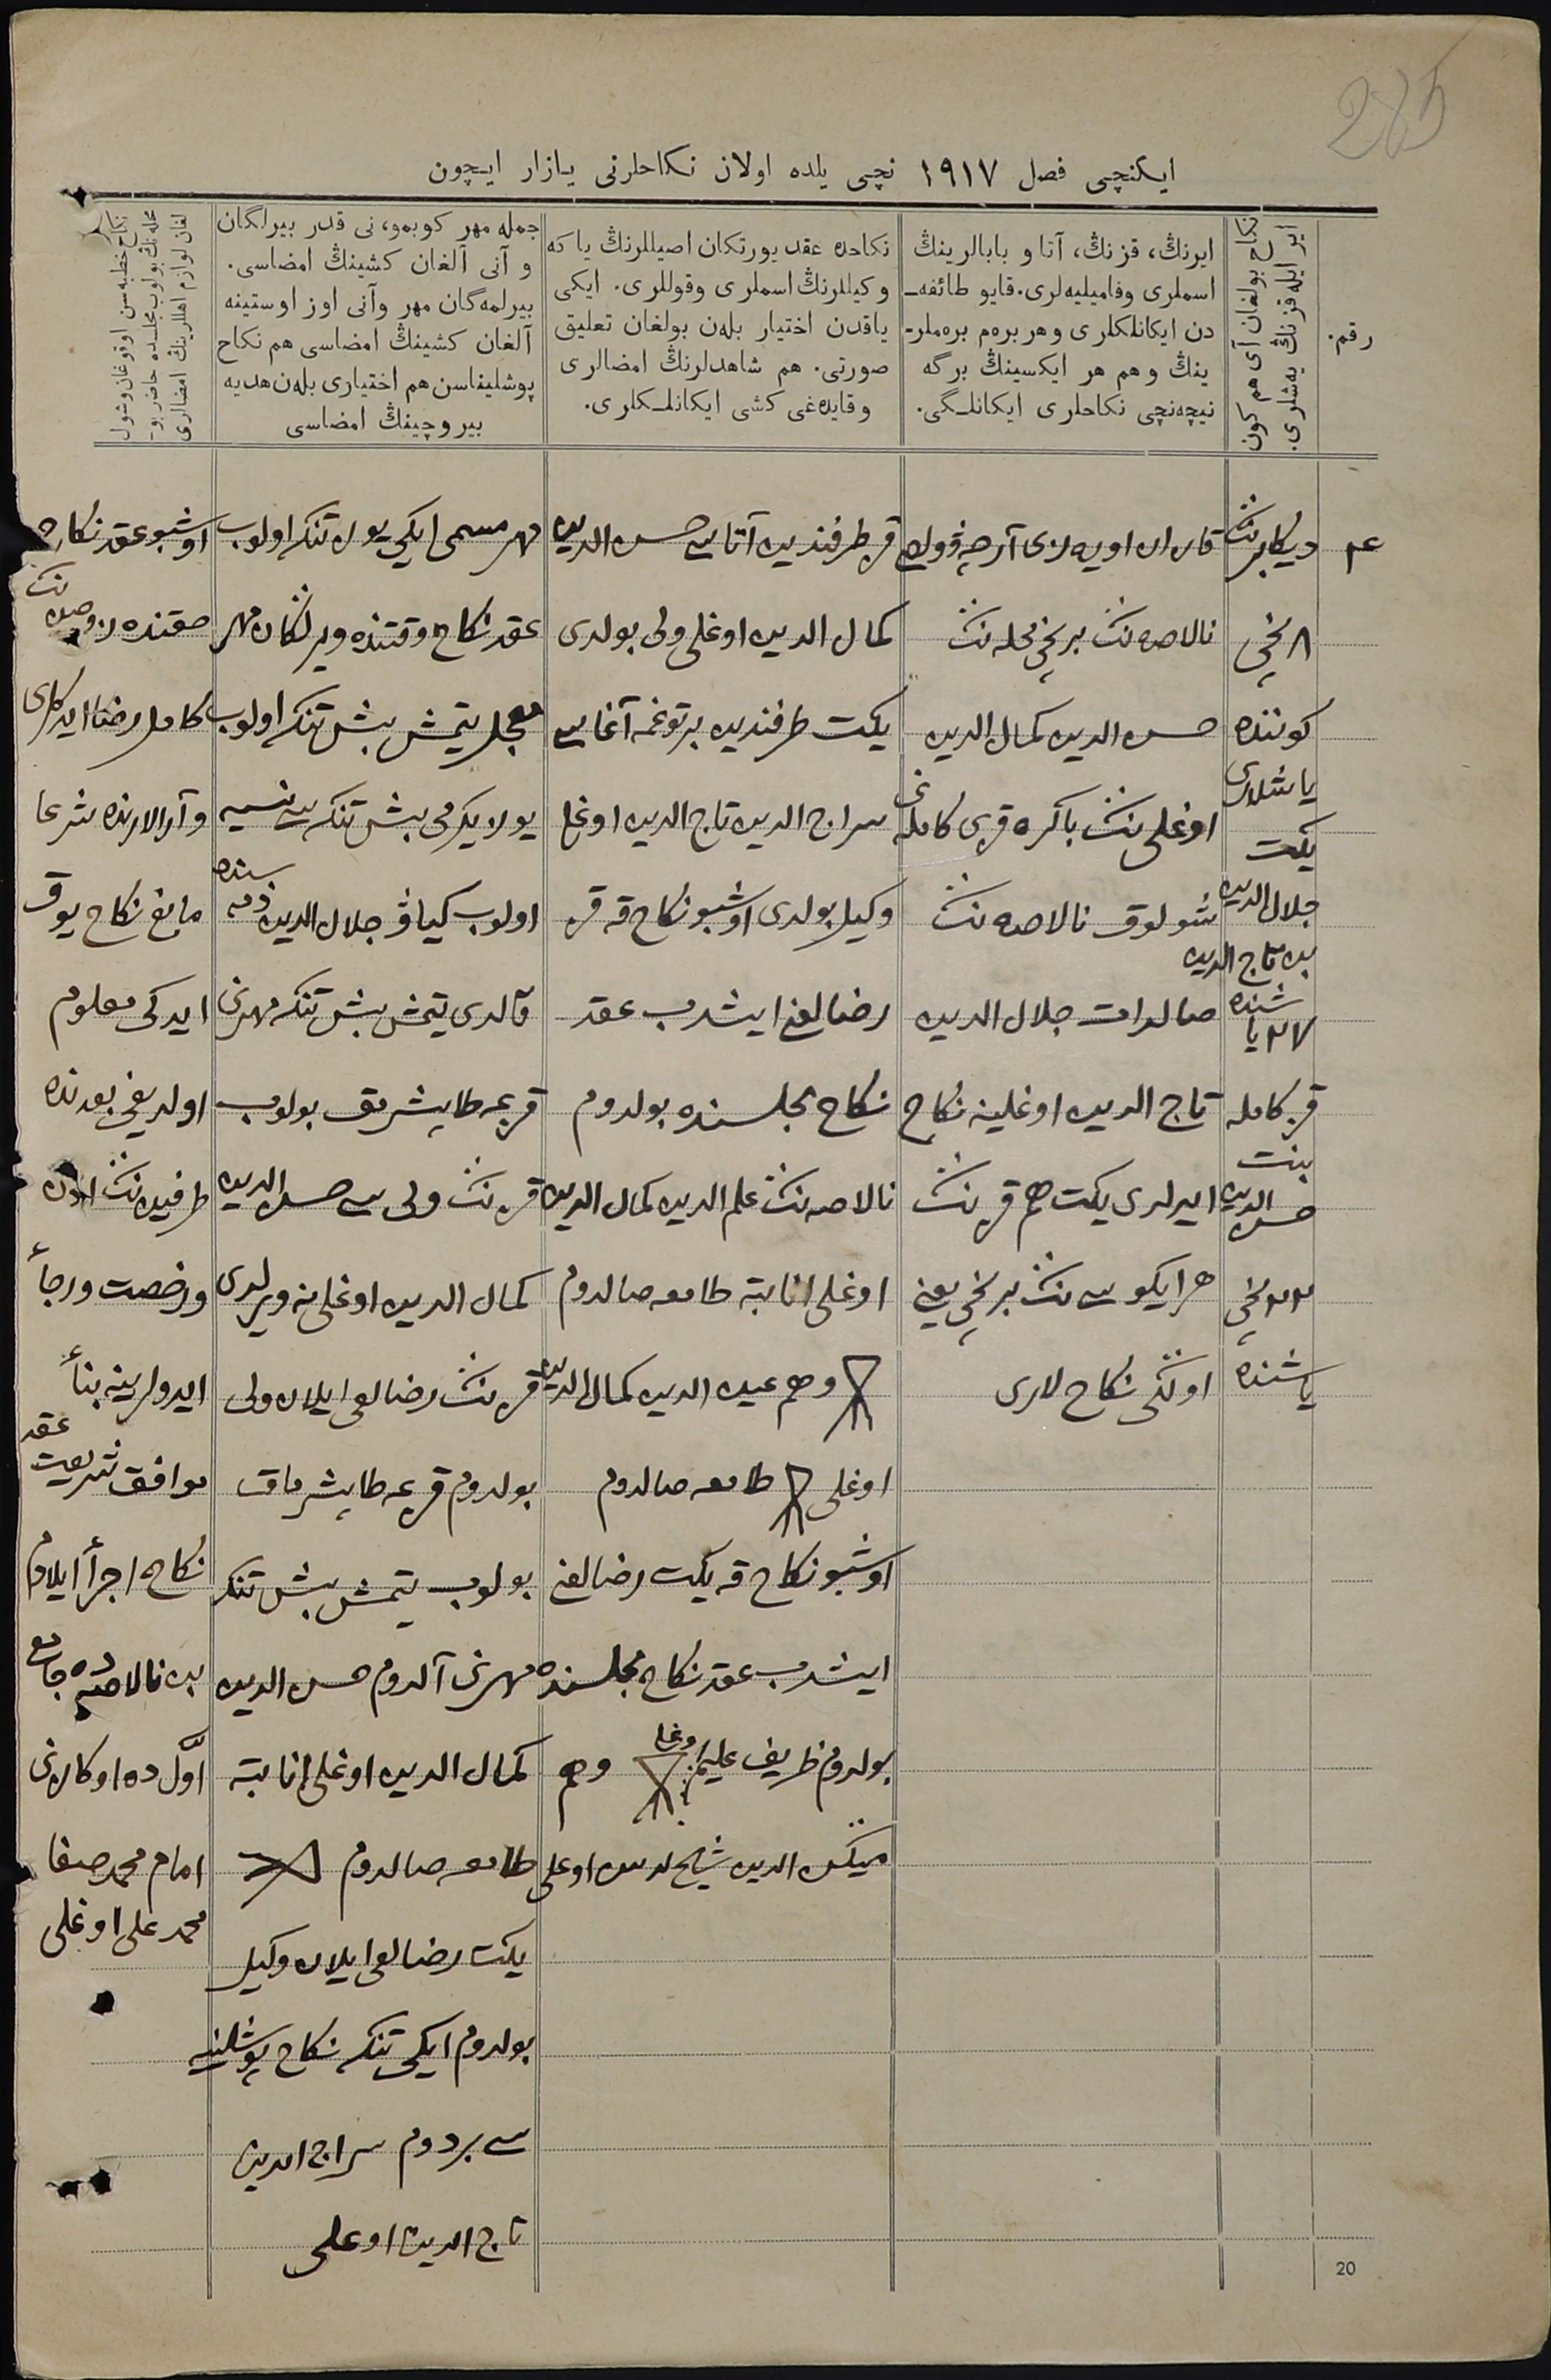 285
ایکنچی فصل ١٩١٧ نچی یلده اولان نکاحلرنی یازار ایچون
رقم.
نکاح بولغان آی هم کون
ایر ایله قزنڭ یه‌شلری.
ایرنڭ، قزنڭ، آتا و بابالرینڭ
اسملری وفامیلیه‌لری. قایو طائفه‌ـ
دن ایکانلکلری و هر بره‌م بره‌ملرـ
ینڭ و هم هر ایکسینڭ برگه
نیچه‌نچی نکاحلری ایکانلـگی.
نکاحده عقد یورتکان اصیللرنڭ یا که
وکیللرنڭ اسملری وقوللری. ایکی
یاقدن اختیار بله‌ن بولغان تعلیق
صورتی. هم شاهدلرنڭ امضالری
وقایده‌غی کشی ایکانلـکلری.
جمله مهر کوبمو، نی قدر بیرلگان
و آنی آلغان کشینڭ امضاسی.
بیرلمه‌گان مهر وآنی اوز اوستینه
آلغان کشینڭ امضاسی هم نکاح
پوشلیناسن هم اختیاری بله‌ن هدیه
بیروچینڭ امضاسی
نکاح خطبه‌سن اوقوغان وشول
محله‌نڭ بولوب مجلسده حاضر بوـ
لغان لوازم اهللرینڭ امضالری
٢٤
دیکابرنڭ
٨ نچی
کوننده
یاشلاری
یکت
جلال الدین
بن تاج الدین
٢٧ یا شنده
قز کامله
بنت
حسن الدین
٢٢ نچی
یاشنده
قازان اویه‌زی آرچه ڤولصی
نالاصه ننڭ برنچی محله ننڭ
حسن الدین کمال الدین
اوغلی ننڭ باکره قزی کامله نی
شولوق نالاصه ننڭ
صالدات جلال الدین
تاج الدین اوغلینه نکاح
ایرلری یکت هم قز ننڭ
هر ایکوسی ننڭ برنچی یعنی
اولگی نکاح لاری
قز طرفندین آتاسی حسن الدین
کمال الدین اوغلی ولی بولدی
یکت طرفندین برتوغمه آغاسی
سراج الدین تاج الدین اوغلی
وکیل بولدی اوشبو نکاح قه قز
رضالغن ایشدب عقد
نکاح مجلسنده بولدوم
نالاصه ننڭ علم الدین کمال الدین
اوغلی انابته طامعه صالدوم
وهم عین الدین کمال الدین
اوغلی طامعه صالدوم
اوشبو نکاح قه یکت رضالغن
ایشدب عقد نکاح مجلسنده
بولدوم ظریف علیم اوغلی وهم
الدین شیخ اوغلی
مهر مسمی ایکی یوز تنکه اولوب
عقد نکاح وقتنده ویرلگان مهر
معجل یتمش بیش تنکه اولوب
یوز یکرمی بیش تنکه سی نسیه
اولوب کیاڤ جلال الدین ذمه سنده
قالدی یتمش بیش تنکه مهرنی
قزیمه طاپشرمق بولوب
قز ننڭ ولی سی حسن الدین
کمال الدین اوغلی نه ویرلدی
قز ننڭ رضالغی ایلان ولی
بولدوم قزیمه طاپشرماق
بولوب یتمش بیش تنکه
مهرنی آلدوم حسن الدین
کمال الدین اوغلی انابته
طامعه صالدوم
یکت رضالغی ایلان وکیل
بولدوم ایکی تنکه نکاح پوشلینه
سی بردوم سراج الدین
تاج الدین اوغلی
اوشبو عقد نکاح
حقنده زوجین ننڭ
کامل رضا ایدکلری
وآرالارنده شرعا
مانع نکاح یوق
ایدکی معلوم
اولدیغی بعدنده
طرفین ننڭ اذن
ورخصت ورجأ
ایدولرینه بنأ
موافق شریعت عقد
نکاح اجرأ ایلادم
بن نالاصه ده جامع
اوّل ده اوکازنی
امام محمد صفا
محمد علی اوغلی
20